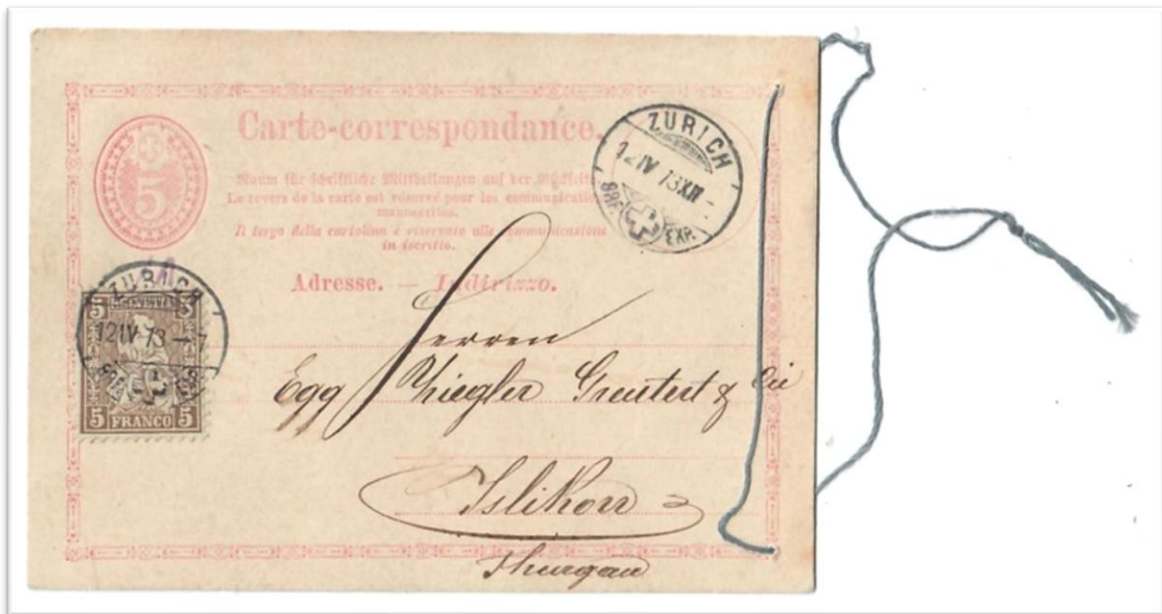 Carte-correspondance.
5
Raum für schriftliche Mittheilungen auf der Rückseite.
Le revers de la carte est réservé pour les communications
manuscrites.
Il tergo della cartolina è riservato alle communicazioni
in iscritto.
Adresse. — Indirizzo.
ZÜRICH
12 IV 73 XII -
BRF. EXP.
ZÜRICH
12 IV 73 - 7
5 5
5 FRANCO 5
Herren
Egg Ziegler Greutert & Cie
Islikon
Thurgau